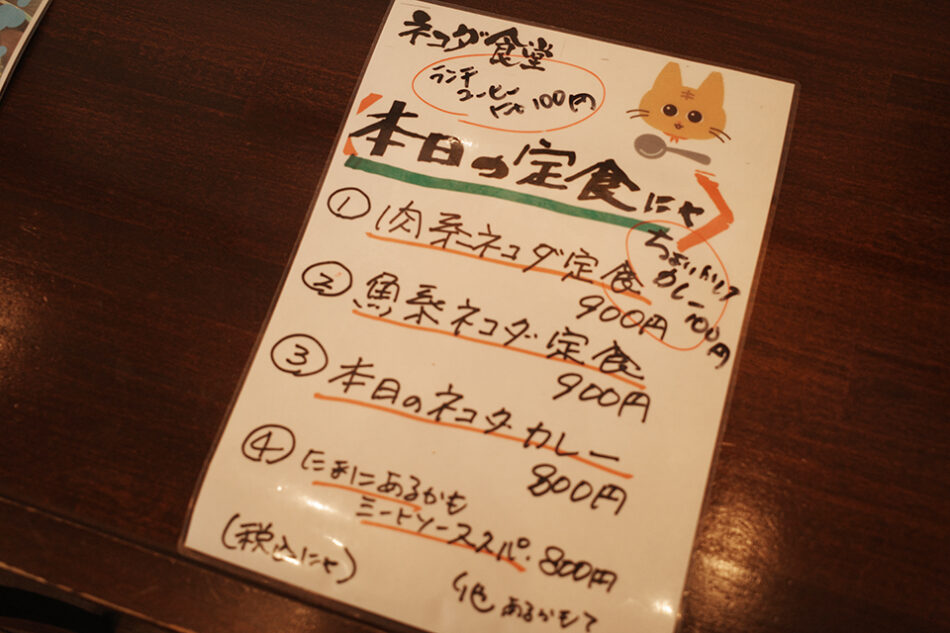 ネコダ食堂
ランチ
コーヒー
100円
本日の定食にゃ
① 肉系ネコダ定食
900円
ちょいがけ
カレー
100円
② 魚系ネコダ定食
900円
③ 本日のネコダカレー
800円
④ たまにあるかも
ミートソーススパ. 800円
(税込にゃ)
他あるかもて